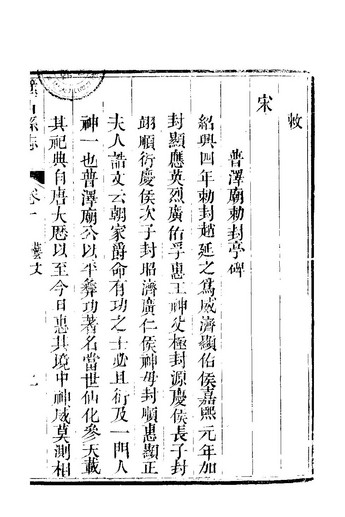 敕
宋
普澤廟勅封亭碑
紹興四年勅封趙延之爲威濟顯佑侯嘉熙元年加
封顯應英烈廣佑孚惠王神父極封源慶侯長子封
翊順衍慶侯次子封昭濟廣仁侯神母封順惠顯正
夫人誥文云朝家爵命有功之士必且衍及一門人
神一也普澤廟公以平彝功著名當世仙化參天載
其祀典自唐大曆以至今日惠其境中神威莫測相
縣志
卷
藝文